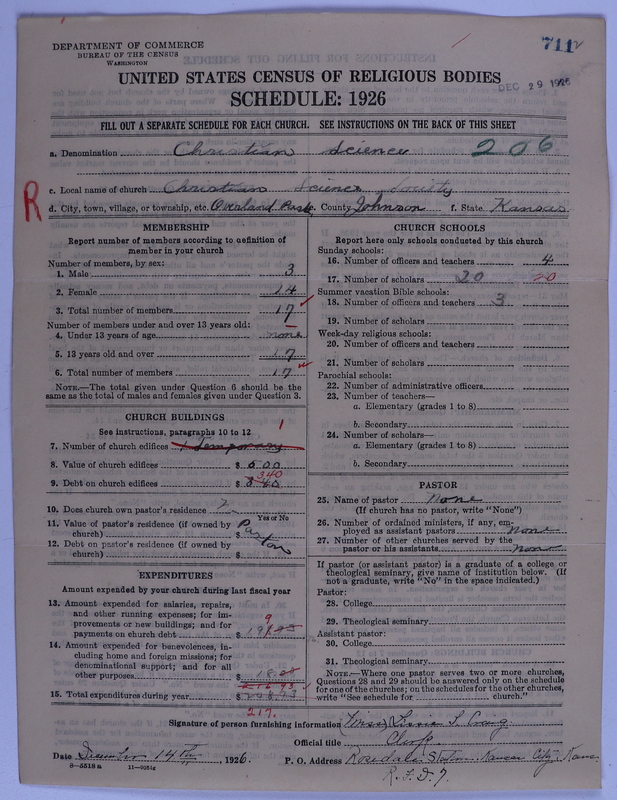 DEPARTMENT OF COMMERCE
BUREAU OF THE CENSUS
WASHINGTON
7112
DEC 29 1926
UNITED STATES CENSUS OF RELIGIOUS BODIES
SCHEDULE: 1926
FILL OUT A SEPARATE SCHEDULE FOR EACH CHURCH. SEE INSTRUCTIONS ON THE BACK OF THIS SHEET
a. Denomination Christian Science 206
c. Local name of church Christian Science Society
R
d. City, town, village, or township, etc. Overland Park e. County Johnson f. State Kansas
MEMBERSHIP
Report number of members according to definition of
member in your church
Number of members, by sex:
1. Male 3
2. Female 14
3. Total number of members 17
Number of members under and over 13 years old:
4. Under 13 years of age none
5. 13 years old and over 17
6. Total number of members 17
NOTE.—The total given under Question 6 should be the
same as the total of males and females given under Question 3.
CHURCH BUILDINGS
See instructions, paragraphs 10 to 12
1
7. Number of church edifices 1 temporary
8. Value of church edifices $
340
9. Debt on church edifices $
10. Does church own pastor's residence
Yes or No
11. Value of pastor's residence (if owned by
church) $
12. Debt on pastor's residence (if owned by
church) $
EXPENDITURES
Amount expended by your church during last fiscal year
13. Amount expended for salaries, repairs,
and other running expenses; for im-
provements or new buildings; and for
payments on church debt $
14. Amount expended for benevolences, in-
cluding home and foreign missions; for
denominational support; and for all
other purposes $
15. Total expenditures during year $
217.
CHURCH SCHOOLS
Report here only schools conducted by this church
Sunday schools:
16. Number of officers and teachers 4
17. Number of scholars 20 20
Summer vacation Bible schools:
18. Number of officers and teachers 3
19. Number of scholars
Week-day religious schools:
20. Number of officers and teachers
21. Number of scholars
Parochial schools:
22. Number of administrative officers
23. Number of teachers—
a. Elementary (grades 1 to 8)
b. Secondary
24. Number of scholars—
a. Elementary (grades 1 to 8)
b. Secondary
PASTOR
25. Name of pastor None
(If church has no pastor, write "None")
26. Number of ordained ministers, if any, em-
ployed as assistant pastors none
27. Number of other churches served by the
pastor or his assistants none
If pastor (or assistant pastor) is a graduate of a college or
theological seminary, give name of institution below. (If
not a graduate, write "No" in the space indicated.)
Pastor:
28. College
29. Theological seminary
Assistant pastor:
30. College
31. Theological seminary
NOTE.—Where one pastor serves two or more churches,
Questions 28 and 29 should be answered only on the schedule
for one of the churches; on the schedules for the other churches,
write "See schedule for church."
Signature of person furnishing information (Mrs) S. Craig
Official title Clerk
Date December 14th 1926. P. O. Address Rosedale Station Kansas City Kans.
8-5518a 11-9051g
R.F.D. 7